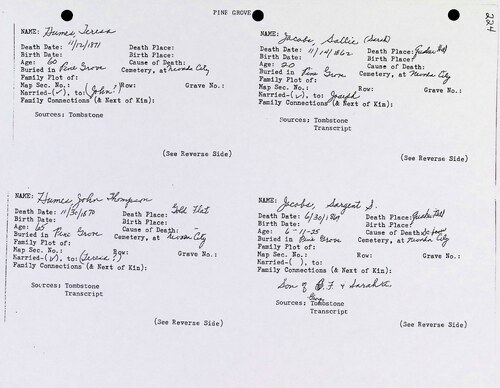 PINE GROVE
224
NAME: Humes, Teresa
Death Date: 11/12/1871 Death Place:
Birth Date: Birth Place:
Age: 60 Cause of Death:
Buried in Pine Grove Cemetery, at Nevada City
Family Plot of:
Map Sec. No.: Row: Grave No.:
Married-(✓), to: (John?)
Family Connections (& Next of Kin):
Sources: Tombstone
(See Reverse Side)
NAME: Jacobs, Sallie (Sarah)
Death Date: 11/14/1862 Death Place:
Birth Date: Birth Place:
Age: 20 Cause of Death:
Buried in Pine Grove Cemetery, at Nevada City
Family Plot of:
Map Sec. No.: Row: Grave No.:
Married-(✓), to: Joseph
Family Connections (& Next of Kin):
Sources: Tombstone
Transcript
(See Reverse Side)
NAME: Humes, John Thompson
Death Date: 11/30/1870 Death Place: Gold Flat
Birth Date: Birth Place:
Age: 65 Cause of Death: -
Buried in Pine Grove Cemetery, at Nevada City
Family Plot of:
Map Sec. No.: Row: Grave No.:
Married-(✓), to: (Teresa?)
Family Connections (& Next of Kin):
Sources: Tombstone
Transcript
(See Reverse Side)
NAME: Jacobs, Sargent S.
Death Date: 6/30/1869 Death Place:
Birth Date: Birth Place:
Age: 6-11-25 Cause of Death:
Buried in Pine Grove Cemetery, at Nevada City
Family Plot of:
Map Sec. No.: Row: Grave No.:
Married-( ), to:
Family Connections (& Next of Kin):
Son of B. F. & Sarah
Sources: Tombstone
Transcript
(See Reverse Side)